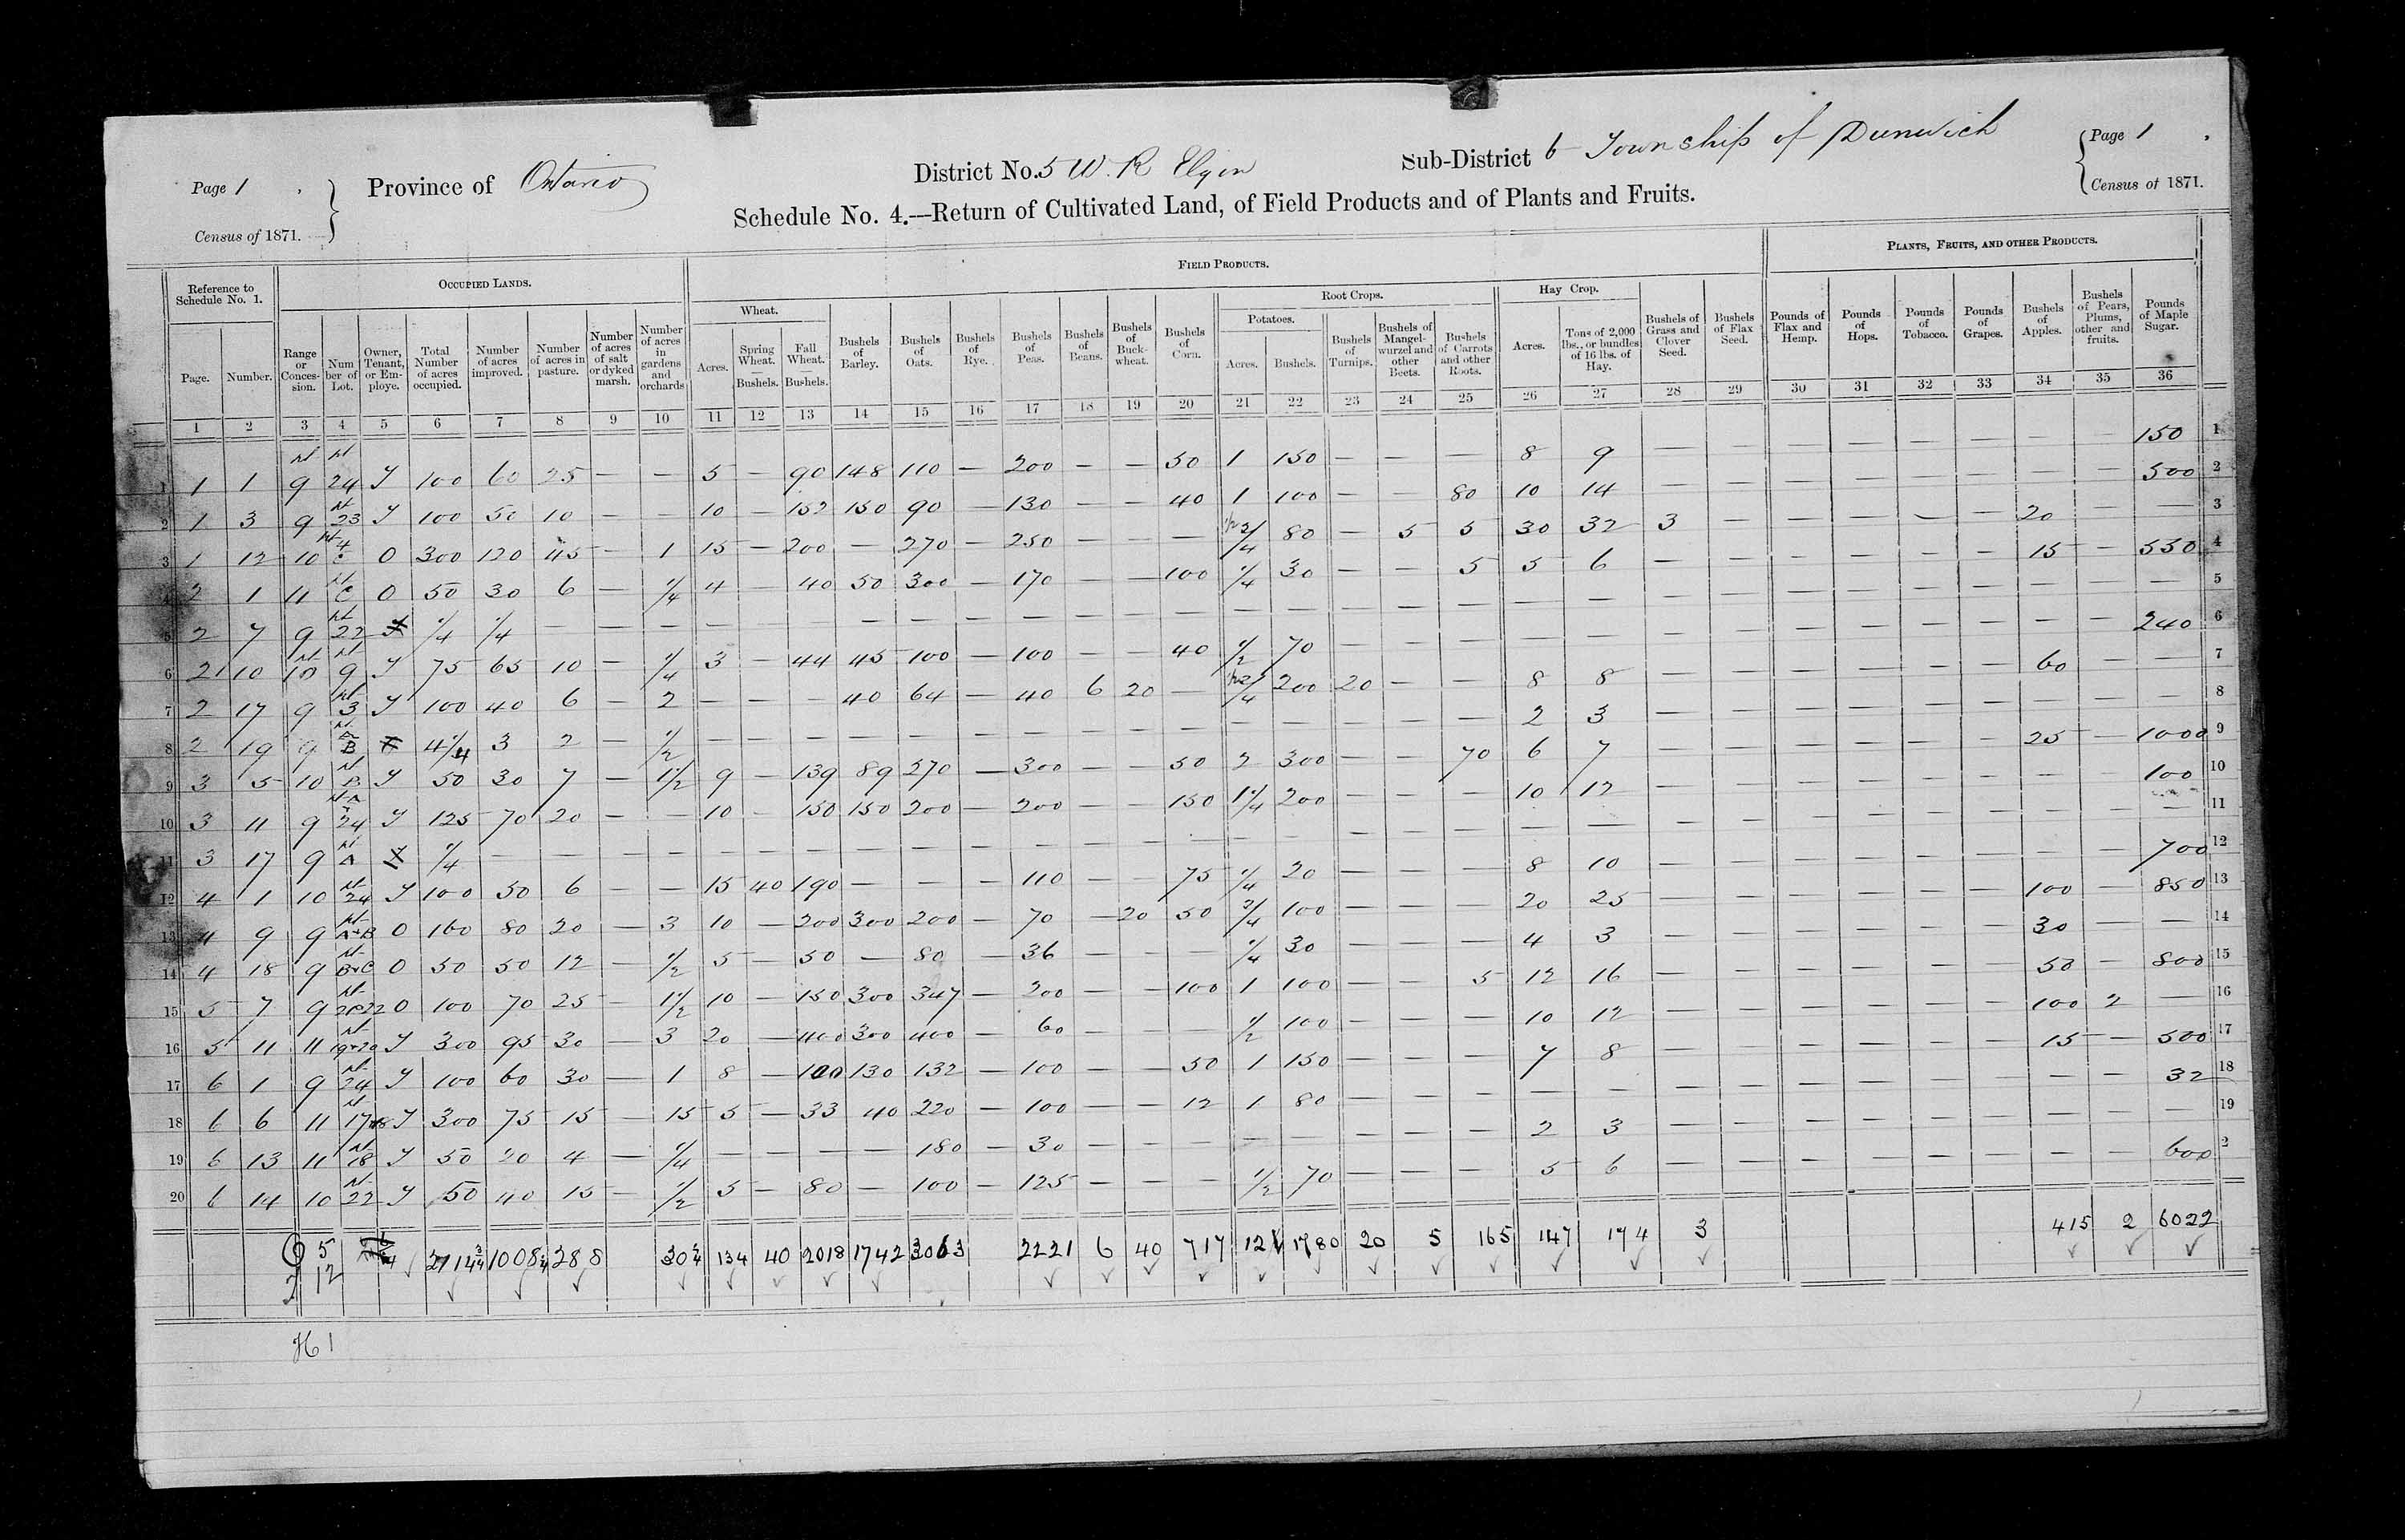 Page 1
Census of 1871.
Province of Ontario
District No. 5 W. R Elgin
Sub-District 6 Township of Dunwich
Page 1
Census of 1871.
Schedule No. 4.—Return of Cultivated Land, of Field Products and of Plants and Fruits.
Reference to Schedule No. 1. OCCUPIED LANDS. FIELD PRODUCTS. PLANTS, FRUITS, AND OTHER PRODUCTS.
Wheat. Root Crops. Hay Crop.
Potatoes.
Page. Number. Range or Conces-sion. Num ber of Lot. Owner, Tenant, or Em-ploye. Total Number of acres occupied. Number of acres improved. Number of acres in pasture. Number of acres of salt or dyked marsh. Number of acres in gardens and orchards Acres. Spring Wheat. — Bushels. Fall Wheat. — Bushels. Bushels of Barley. Bushels of Oats. Bushels of Rye. Bushels of Peas. Bushels of Beans. Bushels of Buck-wheat. Bushels of Corn. Acres. Bushels. Bushels of Turnips. Bushels of Mangel-wurzel and other Beets. Bushels of Carrots and other Roots. Acres. Tons of 2,000 lbs., or bundles of 16 lbs. of Hay. Bushels of Grass and Clover Seed. Bushels of Flax Seed. Pounds of Flax and Hemp. Pounds of Hops. Pounds of Tobacco. Pounds of Grapes. Bushels of Apples. Bushels of Pears, Plums, other and fruits. Pounds of Maple Sugar.
1 2 3 4 5 6 7 8 9 10 11 12 13 14 15 16 17 18 19 20 21 22 23 24 25 26 27 28 29 30 31 32 33 34 35 36
1 1 1 9 24 T 100 60 25 — — 5 — 90 148 110 — 200 — — 50 1 150 — — — 8 9 — — — — — — — — 150 1
2 1 3 9 23 T 100 50 10 — — 10 — 152 150 90 — 130 — — 40 1 100 — — 80 10 14 — — — — — — — — 500 2
3 1 12 10 O 300 120 45 — 1 15 — 200 — 270 — 250 — — — 3/4 80 — 5 5 30 32 3 — — — — — 20 — — 3
4 2 1 11 C O 50 30 6 — 1/4 4 — 40 50 300 — 170 — — 100 1/4 30 — — 5 5 6 — — — — — — 15 — 550 4
5 2 7 9 22 1/4 1/4 — — — — — — — — — — — — — — — — — — — — — — — — — — — — — 5
6 2 10 10 9 T 75 65 10 — 1/4 3 — 44 45 100 — 100 — — 40 1/2 70 — — — — — — — — — — — — — 240 6
7 2 17 9 3 T 100 40 6 — 2 — — — 40 64 — 40 6 20 — 3/4 200 20 — — 8 8 — — — — — — 60 — — 7
8 2 19 9 B 4 1/4 3 2 — 1/2 — — — — — — — — — — — — — — — 2 3 — — — — — — — — — 8
9 3 5 10 B T 50 30 7 — 1 1/2 9 — 139 89 270 — 300 — — 50 2 300 — — 70 6 7 — — — — — — 25 — 1000 9
10 3 11 9 24 T 125 70 20 — — 10 — 150 150 200 — 200 — — 150 1 1/4 200 — — — 10 12 — — — — — — — — 100 10
11 3 17 9 A 1/4 — — — — — — — — — — — — — — — — — — — — — — — — — — — — — — 11
12 4 1 10 24 T 100 50 6 — — 15 40 190 — — — 110 — — 75 1/4 20 — — — 8 10 — — — — — — — — 700 12
13 4 9 9 A+B O 160 80 20 — 3 10 — 200 300 200 — 70 — 20 50 3/4 100 — — — 20 25 — — — — — — 100 — 850 13
14 4 18 9 B+C O 50 50 12 — 1/2 5 — 50 — 80 — 36 — — — 1/4 30 — — — 4 3 — — — — — — 30 — — 14
15 5 7 9 O 100 70 25 — 1 1/2 10 — 150 300 347 — 200 — — 100 1 100 — — 5 12 16 — — — — — — 50 — 800 15
16 5 11 11 19+20 T 300 95 30 — 3 20 — 400 300 400 — 60 — — — 1/2 100 — — — 10 12 — — — — — — 100 2 — 16
17 6 1 9 24 T 100 60 30 — 1 8 — 100 130 132 — 100 — — 50 1 150 — — — 7 8 — — — — — — 15 — 500 17
18 6 6 11 17+18 T 300 75 15 — 15 5 — 33 40 220 — 100 — — 12 1 80 — — — — — — — — — — — — — 32 18
19 6 13 11 18 T 50 20 4 — 1/4 — — — — 180 — 30 — — — — — — — — 2 3 — — — — — — — — — 19
20 6 14 10 22 T 50 40 15 — 1/2 5 — 80 — 100 — 125 — — — 1/2 70 — — — 5 6 — — — — — — — — 600 2
O 5 2114 3/4 1008 1/4 288 30 3/4 134 40 2018 1742 3063 2221 6 40 717 12 1780 20 5 165 147 174 3 415 2 6022
12